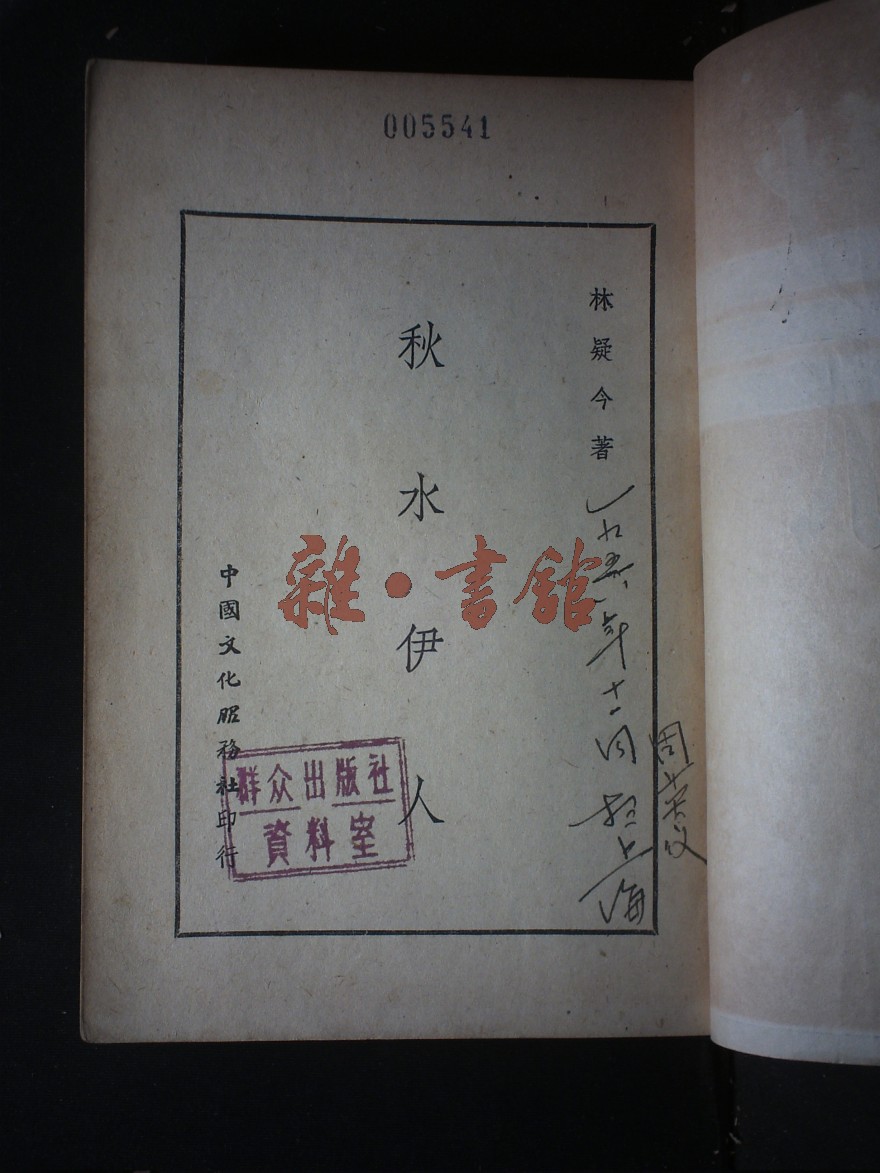 005541
林疑今著
秋水伊人
中國文化服務社印行
群众出版社
資料室
一九五六年十一月
上海
雜·書舘